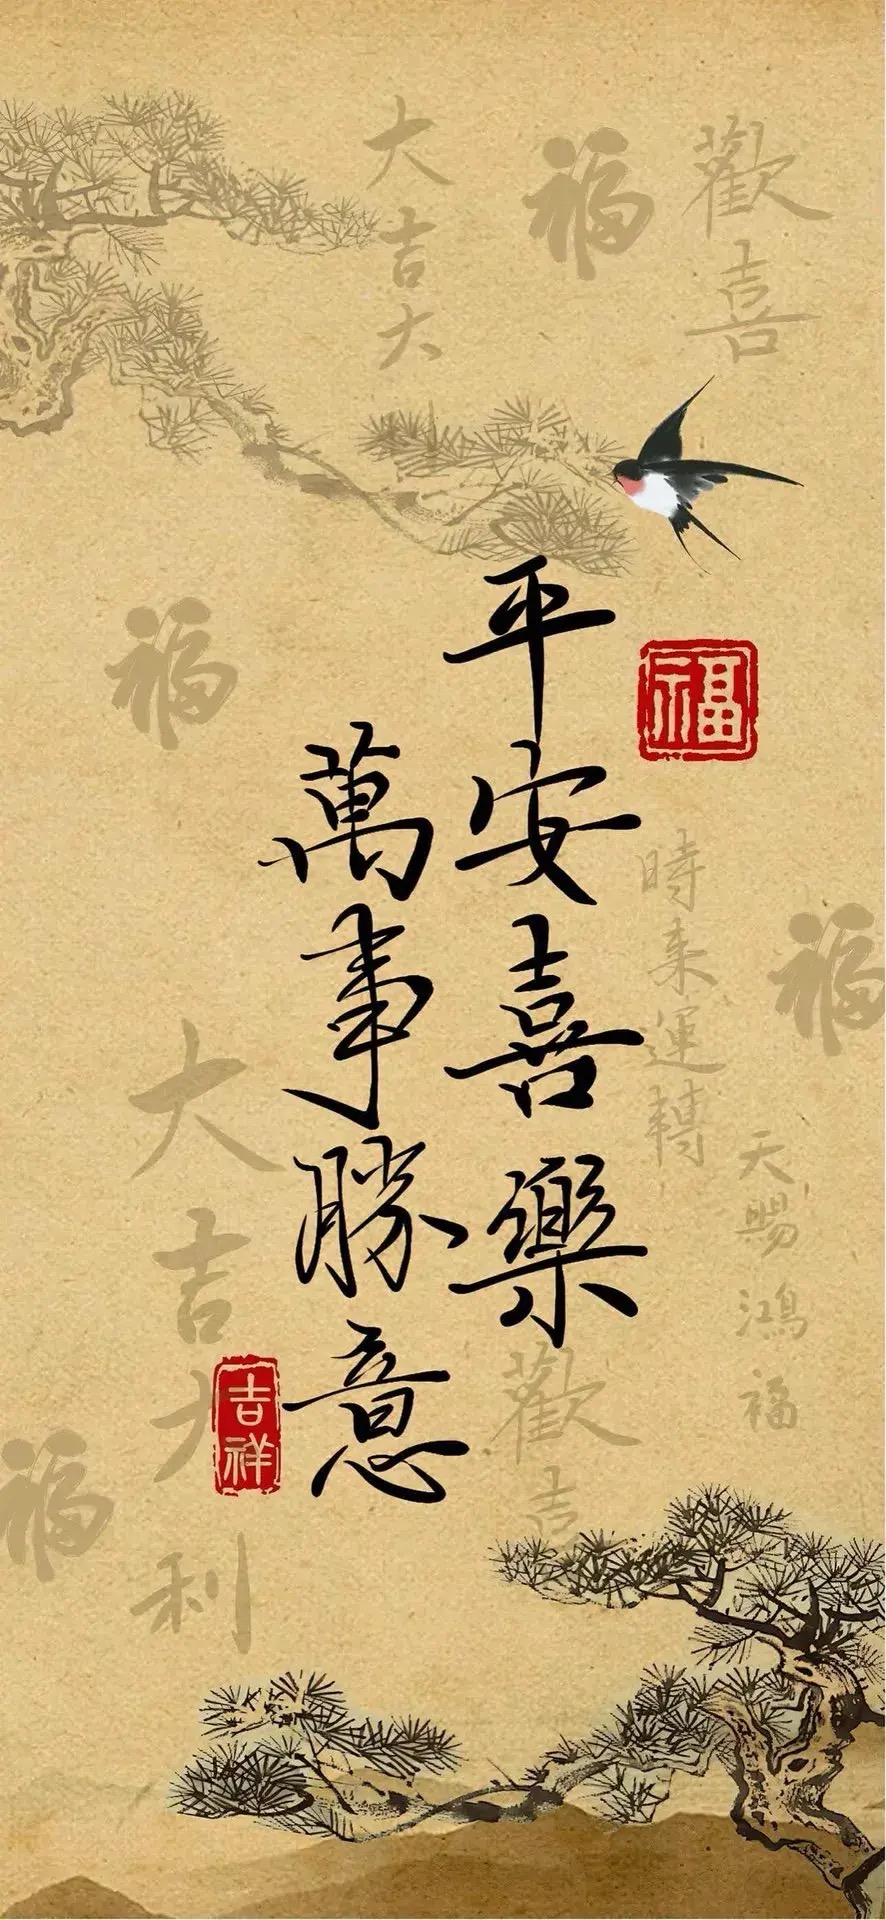 平安喜樂
萬事勝意
福
吉祥
歡喜
福
大吉大
福
時来運轉
福
天賜鴻福
大吉大利
歡吉
福